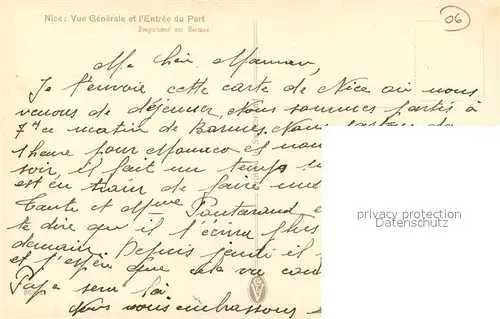 Nice : Vue Générale et l'Entrée du Port
Imprimé en Suisse
06
Ma chère Maman,
Je t'envoie cette carte de Nice où nous
venons de déjeuner. Nous sommes partis à
7H ce matin de Nous
1 heure pour Monaco et
soir, il fait un temps
est en train de faire une
tante et Mme
te dire que il t'écrira plus
demain. Depuis jeudi il
et j'espère que cela va
Papa sera là
Nous vous embrassons
privacy protection
Datenschutz